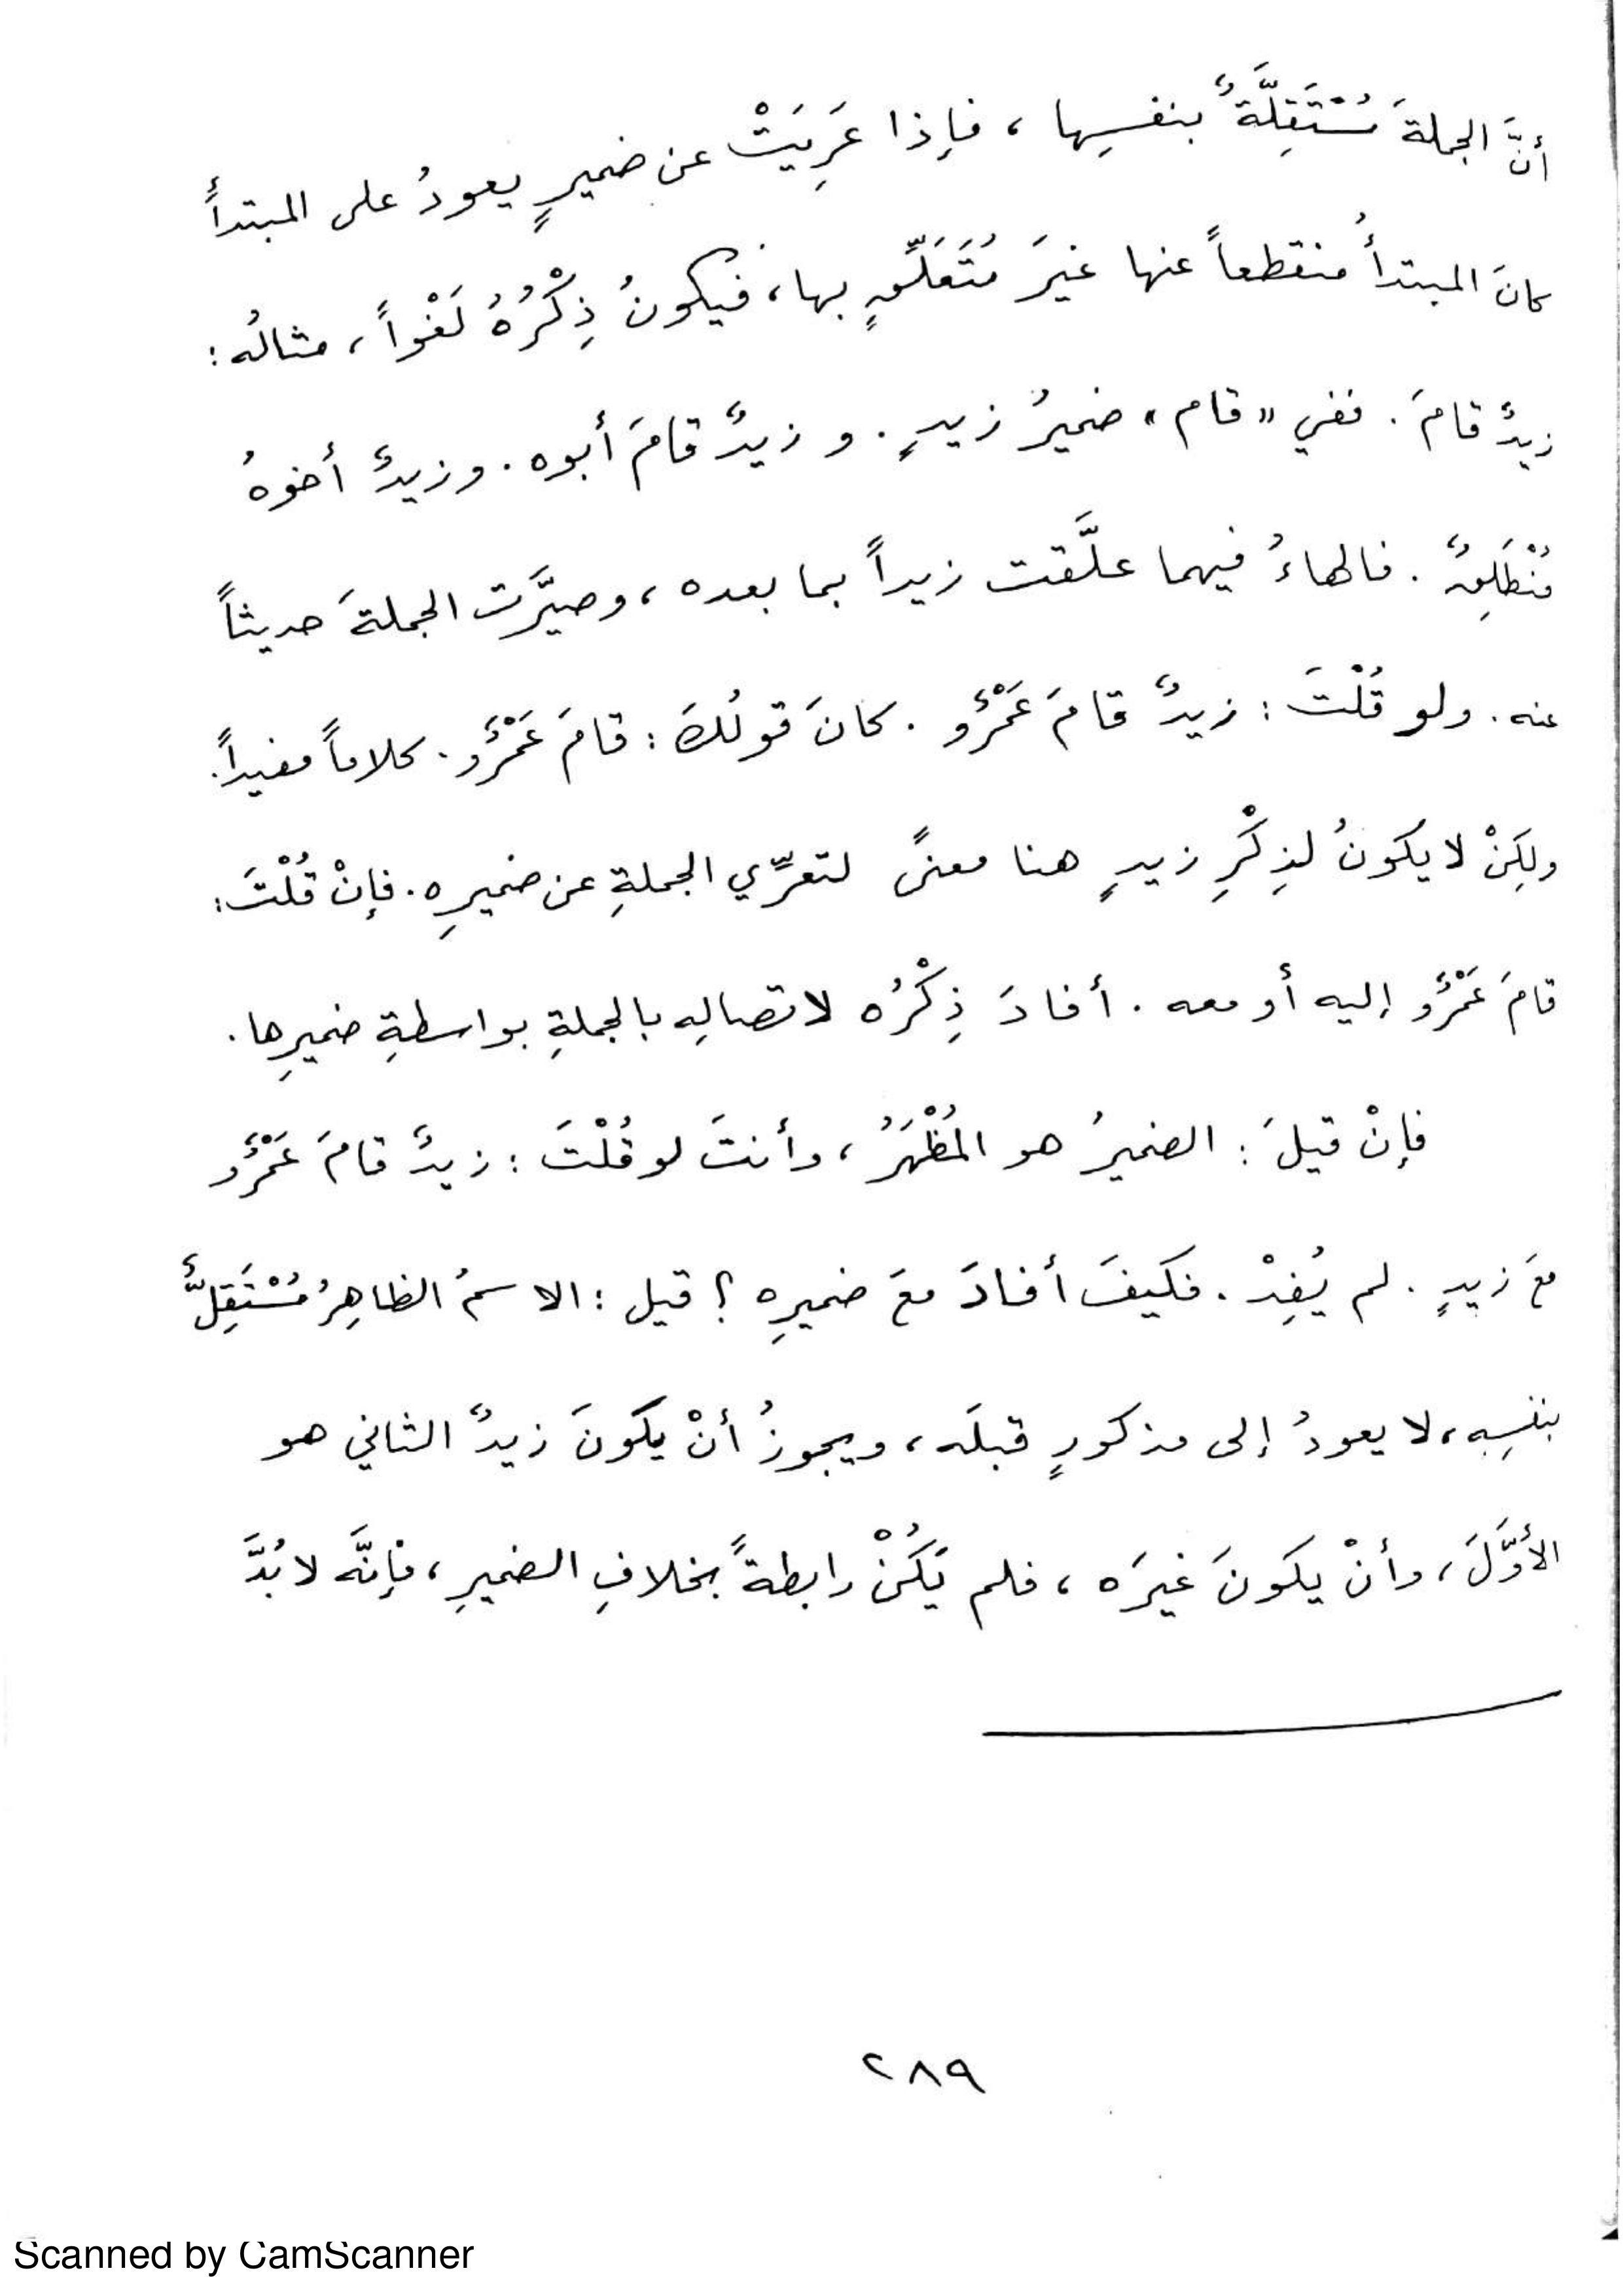 أنَّ الجملةَ مُسْتَقِلَّةٌ بنفسِها ، فإذا عَرِيَتْ عن ضميرٍ يعودُ على المبتدأً
كانَ المبتدأُ منقطعاً عنها غيرَ مُتَعَلِّقٍ بها ، فيكونُ ذِكْرُهُ لَغْواً ، مثالُه :
زيدٌ قامَ . ففي " قام " ضميرُ زيدٍ . و زيدٌ قامَ أبوه . وزيدٌ أخوهُ
مُنْطَلِقٌ . فالهاءُ فيهما علَّقت زيداً بما بعده ، وصيَّرت الجملةَ حديثاً
عنه . ولو قُلْتَ : زيدٌ قامَ عَمْرٌو . كانَ قولُكَ : قامَ عَمْرٌو . كلاماً مفيداً .
ولكِنْ لا يكونُ لذِكْرِ زيدٍ هنا معنىً لتعرِّي الجملةِ عن ضميرِه . فإنْ قُلْتَ :
قامَ عَمْرٌو إليه أو معه . أفادَ ذِكْرُه لاتصالِه بالجملةِ بواسطةِ ضميرِها .
فإنْ قيلَ : الضميرُ هو المُظْهَرُ ، وأنتَ لو قُلْتَ : زيدٌ قامَ عَمْرٌو
معَ زيدٍ . لم يُفِدْ . فكيفَ أفادَ معَ ضميرِه ؟ قيل : الاسمُ الظاهِرُ مُسْتَقِلٌّ
بنفسِه ، لا يعودُ إلى مذكورٍ قبلَه ، ويجوزُ أنْ يكونَ زيدٌ الثاني هو
الأوَّلَ ، وأنْ يكونَ غيرَه ، فلم يَكُنْ رابطةً بخلافِ الضميرِ ، فإنَّه لا بُدَّ
٢٨٩
Scanned by CamScanner